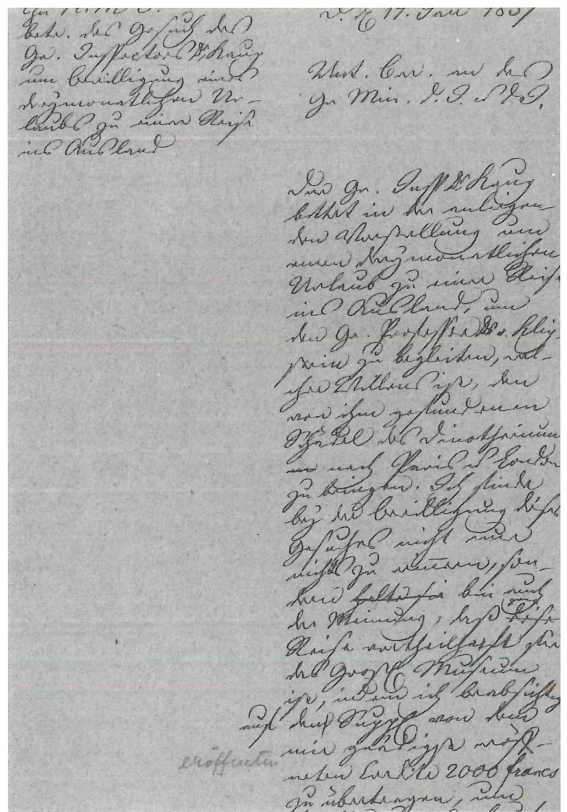 betr. das Gesuch des
Gr. Inspectors Dr Kaup
um Bewilligung eines
dreymonatlichen Ur-
laubs zu einer Reise
ins Ausland
D. 17. Jan 1837
Unt. Ber. an das
Gr Min. d. I. u. d. J.
Der Gr. Insp Dr Kaup
bittet in der anliegen-
den Vorstellung um
einen dreymonatlichen
Urlaub zu einer Reise
ins Ausland, um
den Gr. Professor Dr v. Klip-
stein zu begleiten, wel-
cher Willens ist, den
von ihm gefundenen
Schädel des Dinotherium
nach Paris u London
zu bringen. Ich finde
bey der Bewilligung dieses
Gesuches nicht nur
nichts zu erinnern, son-
dern bin auch
der Meinung, daß diese
Reise vortheilhaft für
das Großh Museum
ist, indem ich beabsichtige
auf den von dem
mir gnädigst eröff-
neten Credite 2000 francs
zu übertragen, um
eröffneten